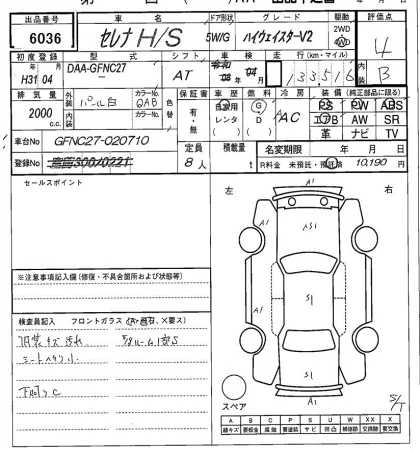 出品番号 車名 ドア形状 グレード 駆動 評価点
6036 セレナH/S 5W/G ハイウェイスターV2 2WD 4WD 4
初度登録 型式 シフト 車検 走行(km・マイル) 内装
H31 年 04 月 DAA-GFNC27- AT 令和 08 年 04 月 133,516 B
排気量 外装 カラーNo. 色替 保証書 車歴 燃料 冷房 装備(純正部品に限る)
2000 c.c. パール白 QAB 有・無 自家用 レンタ G D AC PS PW ABS
内装 カラーNo. エアB AW SR
革 ナビ TV
車台No GFNC27-020710 定員 積載量 名変期限 年 月 日
登録No 8人 t R料金 未預託・預託済 10,190 円
セールスポイント 左 右
A1
A A51
※注意事項記入欄(修復・不具合箇所および状態等)
A1 S1 A
検査員記入 フロントガラス(A・飛石、×要ス)
内装キズ汚れ
シートヘタリ
下回りC
S1
スペア A1 S/T
A B C P S U W X XX
線キズ 要板金 腐蝕 要塗装 サビ 凹凸 補修跡 交換跡 要交換